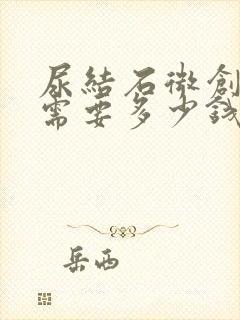 尿結石微創
需要多少錢
岳西